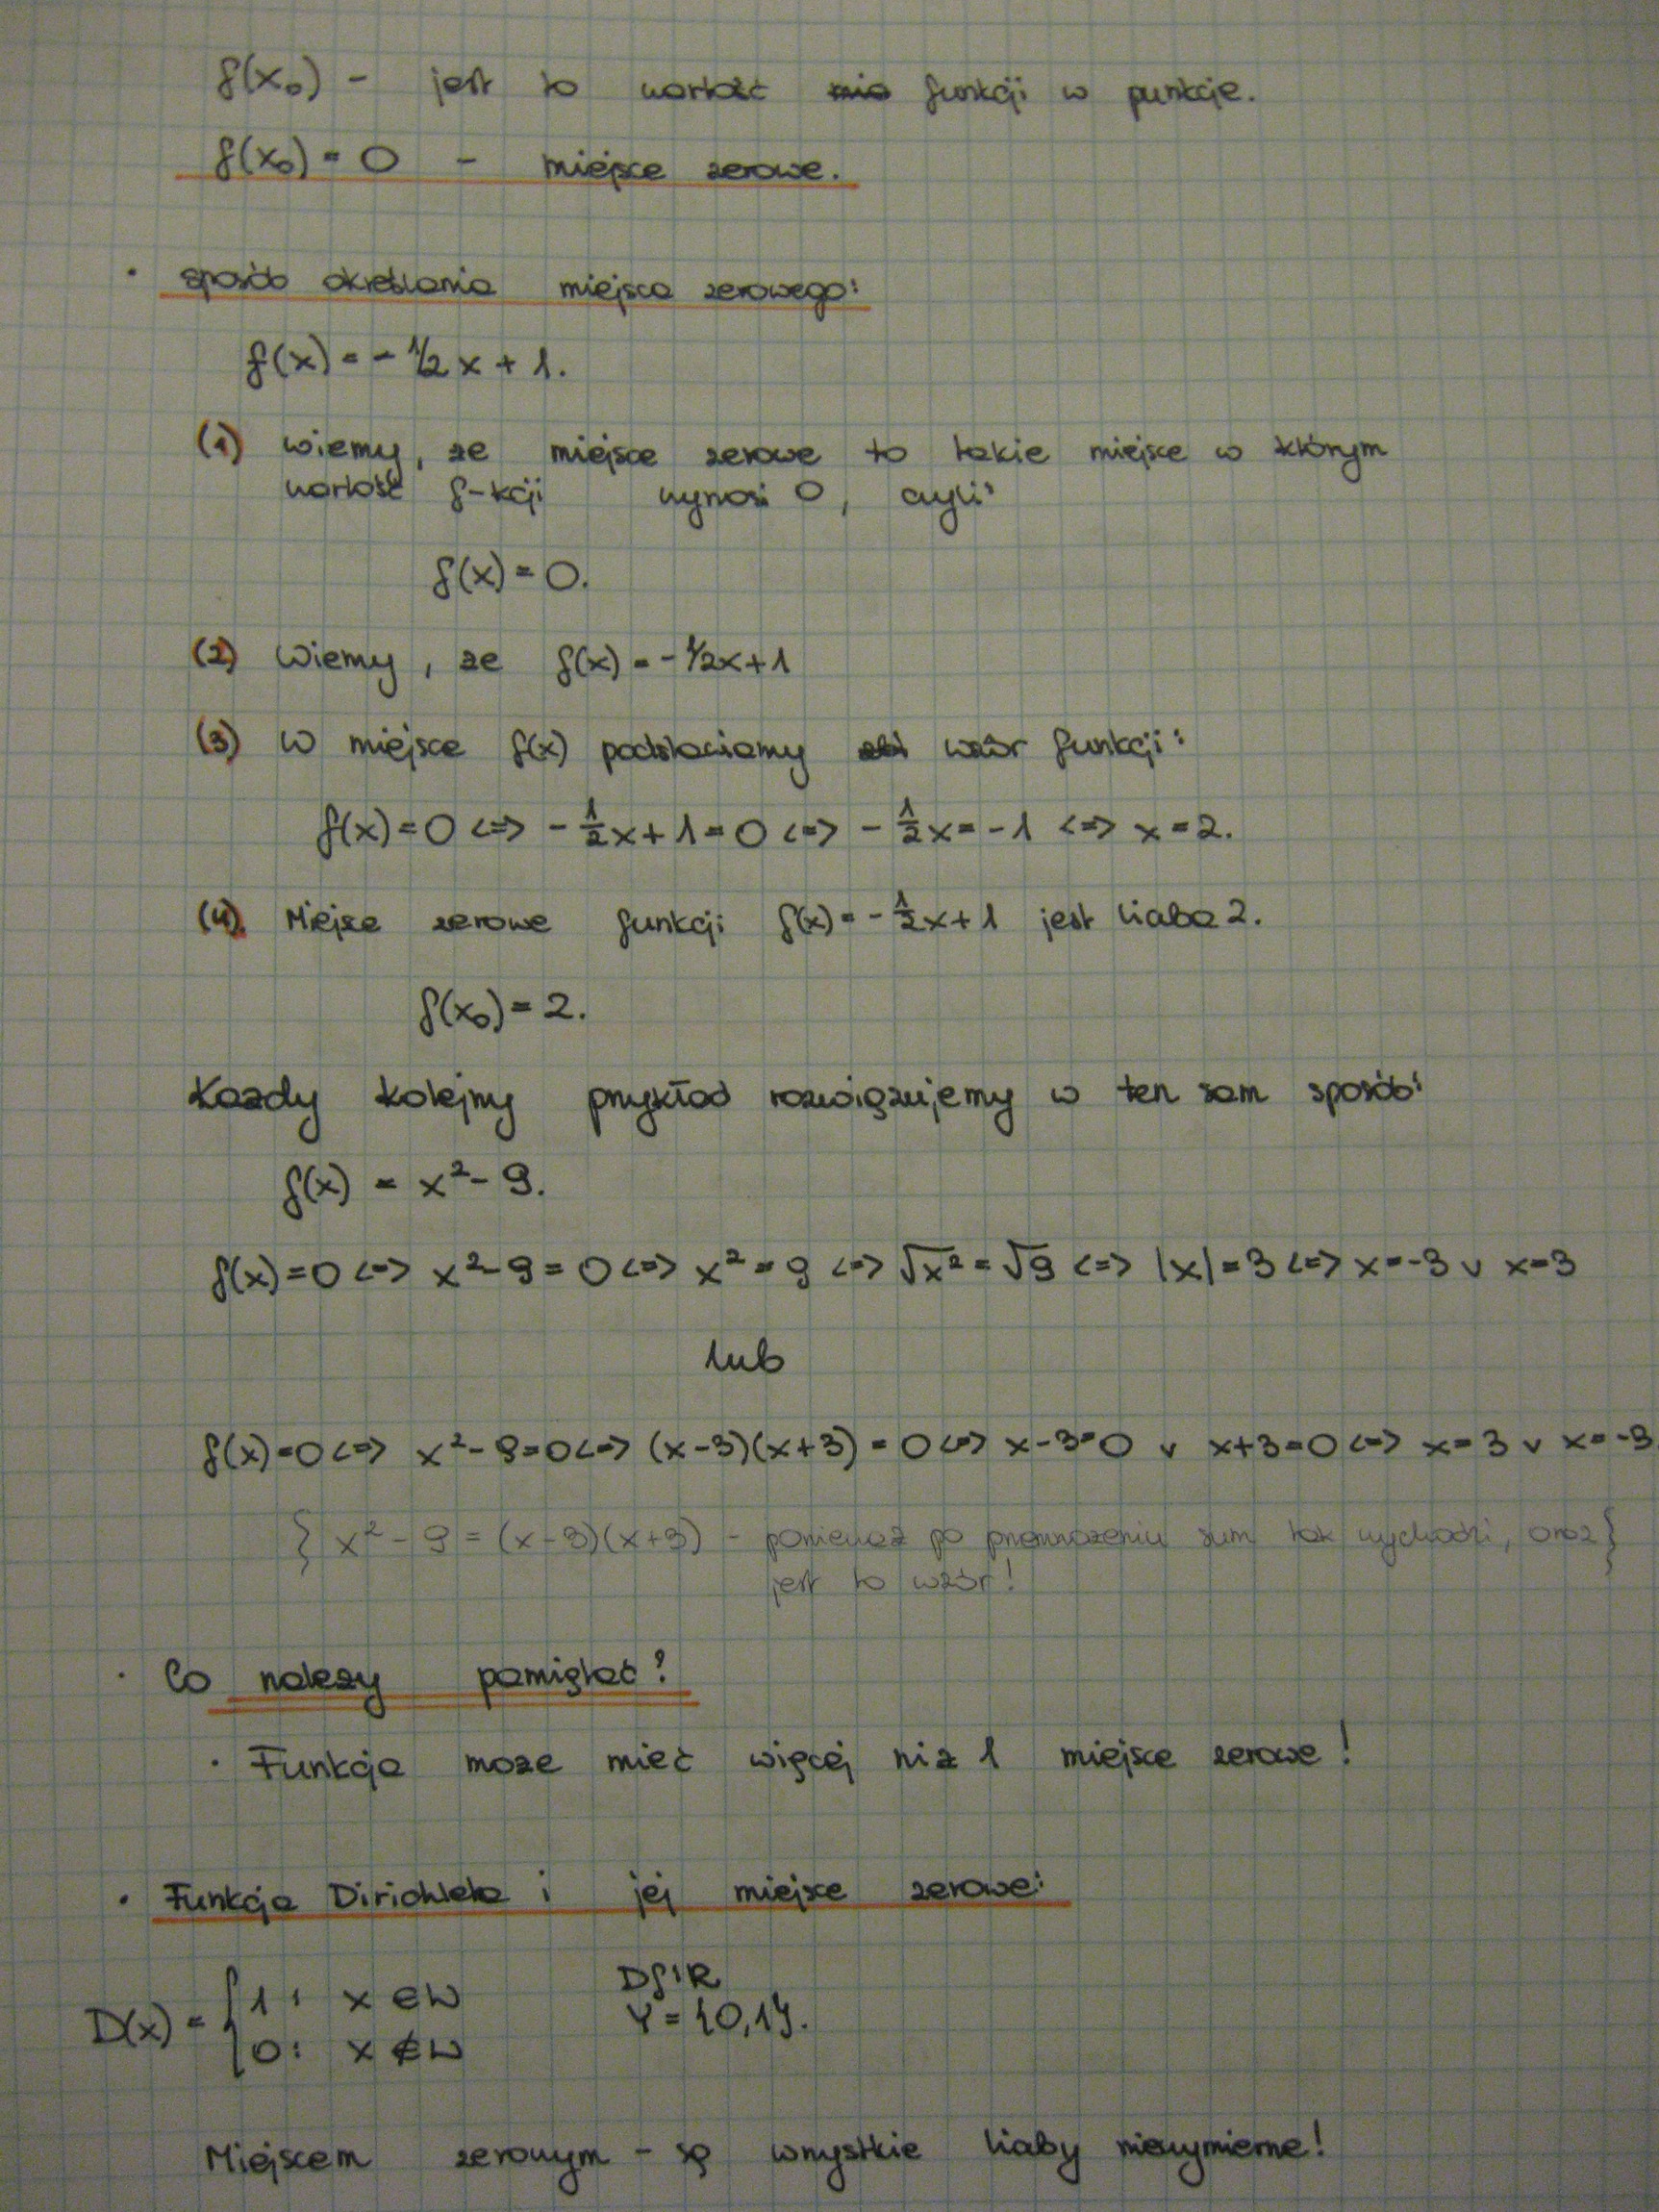 f(x₀) - jest to wartość funkcji w punkcie.
f(x₀) = 0 - miejsce zerowe.
· sposób określania miejsca zerowego:
f(x) = - 1/2 x + 1.
(1) wiemy, ze miejsce zerowe to takie miejsce w którym
wartość f-kcji wynosi 0, czyli:
f(x) = 0.
(2) Wiemy, ze f(x) = - 1/2x+1
(3) W miejsce f(x) podstawiamy wzór funkcji:
f(x) = 0 <=> - 1/2x + 1 = 0 <=> - 1/2x = -1 <=> x = 2.
(4). Miejsce zerowe funkcji f(x) = - 1/2x + 1 jest liczba 2.
f(x₀) = 2.
Kazdy kolejny przykład rozwiązujemy w ten sam sposób:
f(x) = x² - 9.
f(x) = 0 <=> x² - 9 = 0 <=> x² = 9 <=> √x² = √9 <=> |x| = 3 <=> x = -3 v x = 3
lub
f(x) = 0 <=> x² - 9 = 0 <=> (x-3)(x+3) = 0 <=> x-3=0 v x+3=0 <=> x = 3 v x = -3
{ x² - 9 = (x-3)(x+3) - ponieważ po przemnozeniu sum tak wychodzi, oraz }
jest to wzór!
· Co nalezy pamiętać?
· Funkcja moze mieć więcej niz 1 miejsce zerowe!
· Funkcja Dirichleta i jej miejsce zerowe:
D(x) = { 1: x ∈ W
0: x ∉ W
Df: R
Y = {0,1}.
Miejscem zerowym - są wszystkie liczby niewymierne!